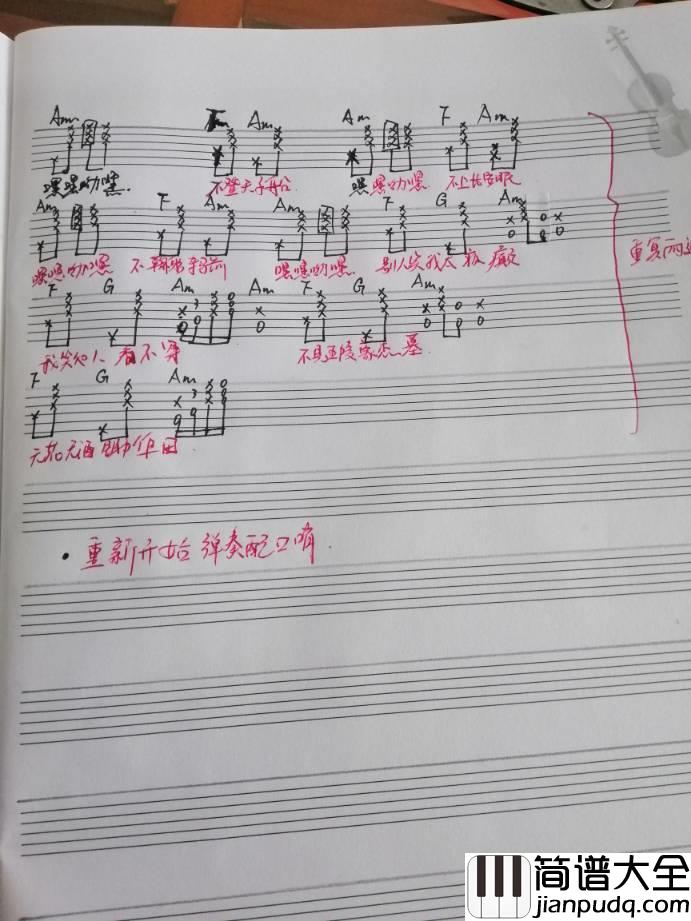 Am F Am Am F Am
嘿嘿呦嘿 不登天子船 嘿嘿呦嘿 不上长安眠
Am F Am Am F G Am
嘿嘿呦嘿 嘿嘿呦嘿 别人笑我太疯癫
F G Am Am F G Am
我笑他人看不穿 不见五陵豪杰墓
F G Am
无花无酒
重复两
• 重新开始 弹奏配口哨
简谱大全
jianpudq.com